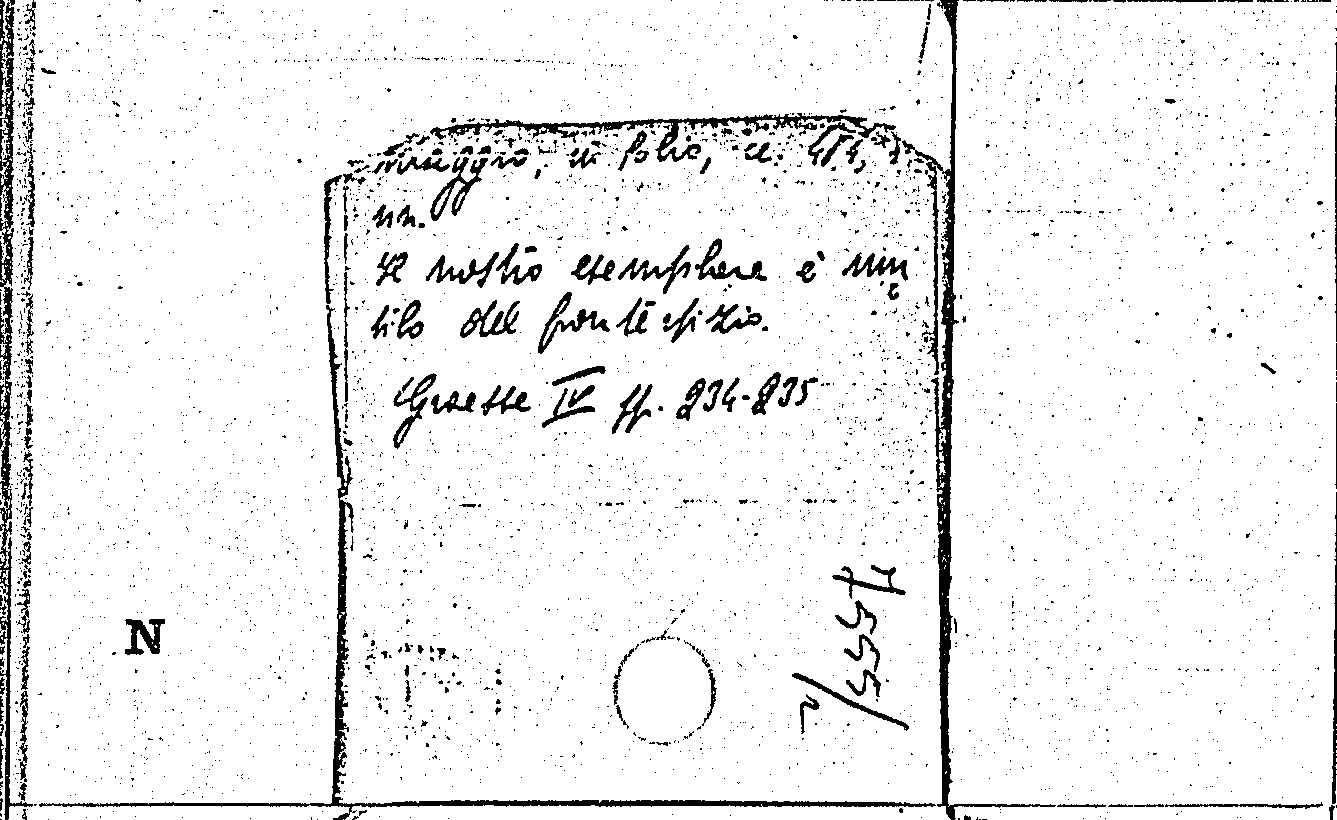 in folio, cc.
nn.
Il nostro esemplare è mu
tilo del frontespizio.
Graesse IV pp. 234-235
N